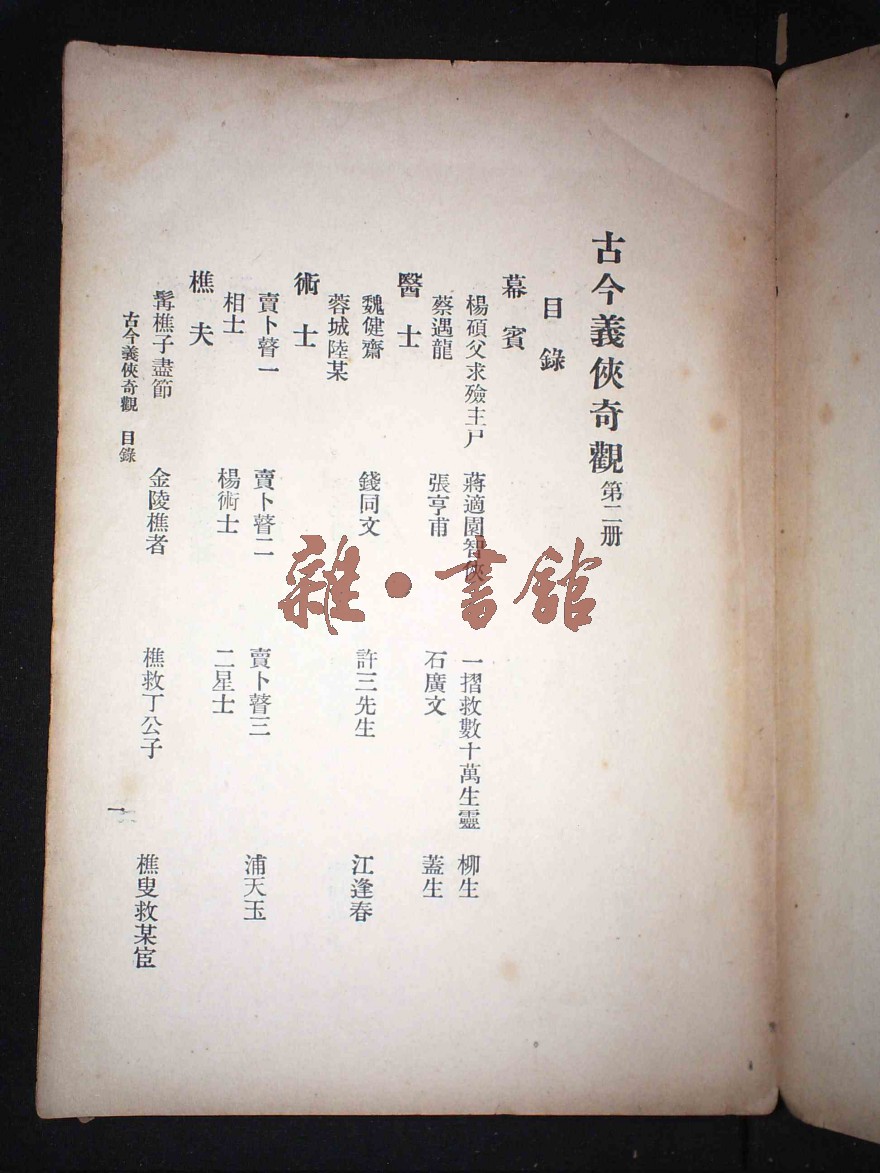 古今義俠奇觀 第二册
目錄
幕賓
楊碩父求殮主尸 蔣適園智俠 一摺救數十萬生靈 柳生
蔡遇龍 張亨甫 石廣文 蓋生
醫士
魏健齋 錢同文 許三先生 江逢春
蓉城陸某
術士
賣卜瞽一 賣卜瞽二 賣卜瞽三 浦天玉
相士 楊術士 二星士
樵夫
髯樵子盡節 金陵樵者 樵救丁公子 樵叟救某宦
古今義俠奇觀 目錄 一
雜·書館